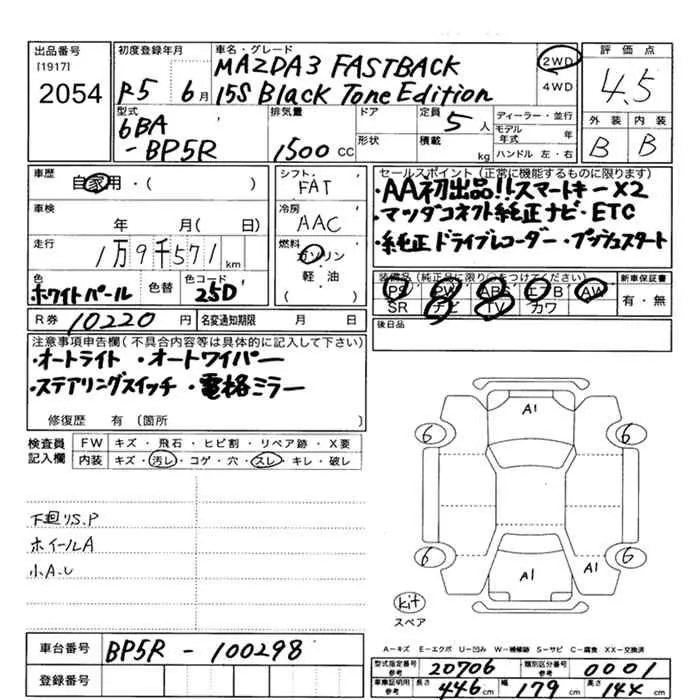 出品番号
[1917]
2054
初度登録年月
R5 6月
車名・グレード
MAZDA3 FASTBACK
15S Black Tone Edition
2WD
4WD
評価点
4.5
外装 内装
B B
型式
6BA
-BP5R
排気量
1500 CC
ドア
形状
定員
5人
積載
kg
ディーラー・並行
モデル年式 年
ハンドル 左・右
車歴
自家用・( )
車検
年 月( 日)
走行
1万9千571km
色
ホワイトパール
色替
色コード
25D
シフト
FAT
冷房
AAC
燃料
ガソリン
軽・油
( )
セールスポイント(正常に機能するものに限ります)
・AA初出品!!スマートキー×2
・マツダコネクト純正ナビ・ETC
・純正ドライブレコーダー・プッシュスタート
装備品(純正品に限り○をつけてください)
PS PW ABS エアB AW
SR ナビ TV カワ
新車保証書
有・無
後日品
R券 10220円
名変通知期限 月 日
注意事項申告欄(不具合内容等は具体的に記入して下さい)
・オートライト ・オートワイパー
・ステアリングスイッチ ・電格ミラー
修復歴 有(箇所 )
検査員
記入欄
FW キズ・飛石・ヒビ割・リペア跡・X要
内装 キズ・汚レ・コゲ・穴・スレ・キレ・破レ
下廻りS.P
ホイールA
小A.U
A1
6 6
6 6
A1 A1
kit
スペア
車台番号
BP5R - 100298
登録番号
A-キズ E-エクボ U-凹み W-補修跡 S-サビ C-腐食 XX-交換済
型式指定番号
参考
20706
類別区分番号
参考
0001
車庫証明用
参考
長さ 446cm 幅 179cm 高さ 144cm